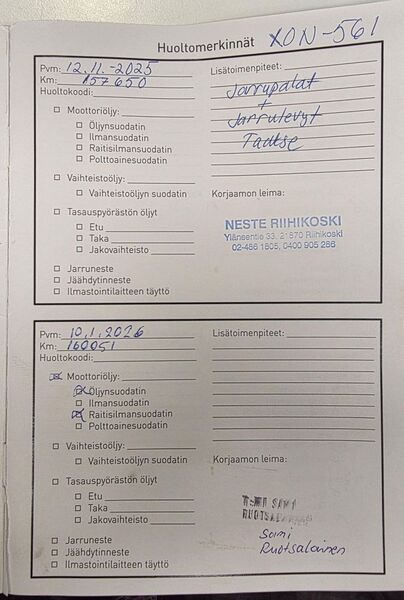 Huoltomerkinnät XON-561
Pvm: 12.11.-2025
Km: 157650
Huoltokoodi:
Moottoriöljy:
Öljynsuodatin
Ilmansuodatin
Raitisilmansuodatin
Polttoainesuodatin
Vaihteistoöljy:
Vaihteistoöljyn suodatin
Tasauspyörästön öljyt
Etu
Taka
Jakovaihteisto
Jarruneste
Jäähdytinneste
Ilmastointilaitteen täyttö
Lisätoimenpiteet:
Jarrupalat
+
Jarrulevyt
Taakse
Korjaamon leima:
NESTE RIIHIKOSKI
Yläneentie 33, 21870 Riihikoski
02-486 1805, 0400 905 286
Pvm: 10.1.2026
Km: 160051
Huoltokoodi:
Moottoriöljy:
Öljynsuodatin
Ilmansuodatin
Raitisilmansuodatin
Polttoainesuodatin
Vaihteistoöljy:
Vaihteistoöljyn suodatin
Tasauspyörästön öljyt
Etu
Taka
Jakovaihteisto
Jarruneste
Jäähdytinneste
Ilmastointilaitteen täyttö
Lisätoimenpiteet:
Korjaamon leima:
SAMI
Sami
Ruotsalainen